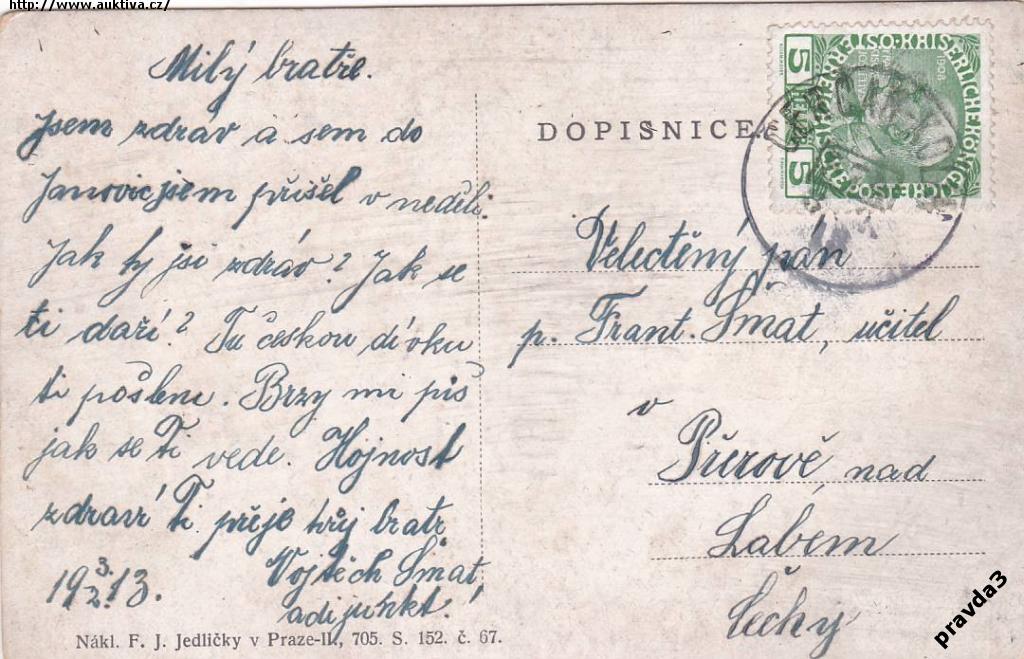 http://www.auktiva.cz/
Milý bratře.
Jsem zdráv a sem do
Janovic jsem přišel v neděli.
Jak ty jsi zdráv? Jak se
ti daří? Tu českou dívku
ti pošlem. Brzy mi piš
jak se Ti vede. Hojnost
zdraví Ti přeje tvůj bratr
Vojtěch Šmat,
adjunkt!
19 3./2. 13.
Nákl. F. J. Jedličky v Praze-II, 705. S. 152. č. 67.
DOPISNICE
5 5
KAISERLICHE KÖNIGLICHE ÖSTERREICHISCHE POST
1908
Velectěný pán
p. Frant. Šmat, učitel
v
Přerově nad
Labem
Čechy
pravda3